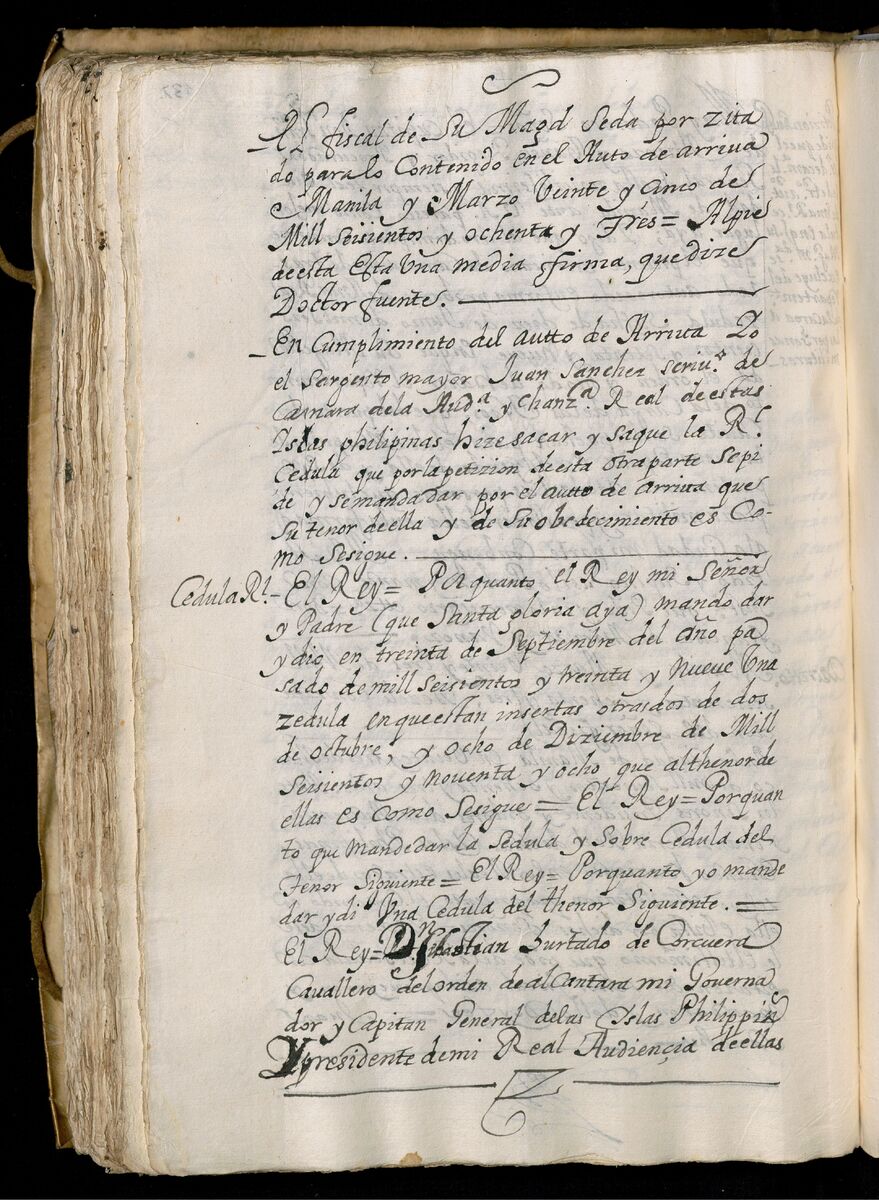 Al fiscal de Su Magd seda por zita
do para lo Contenido en el Auto de arriva
Manila y Marzo Veinte y cinco de
Mill Seisientos y ochenta y Tres= Alpie
deesta Esta Una media firma, que dize
Doctor fuente.
En Cumplimiento del autto de Arriva Yo
el Sargento mayor Juan Sanchez scriu.o de
Camara dela Aud.a y chanz.a Real deestas
Islas philipinas hize sacar y saque la R.l
Cedula que por la petizion deesta otra parte Sepi
de y semanda dar por el autto de arriva que
Su tenor deella y de Su obedecimiento es Co-
mo Sesigue.
Cedula Rl.- El Rey= Por quanto el Rey mi Señor
y Padre (que Santa gloria aya) mando dar
y dio en treinta de Septiembre del año pa
sado de mill seisientos y treinta y nueve Una
zedula en que estan insertas otras dos de dos
de octubre, y ocho de Diziembre de Mill
Seisientos y noventa y ocho que al thenor de
ellas es como Sesigue= El Rey= Porquan
to que mandedar la sedula y Sobre Cedula del
Tenor Siguiente= El Rey= Porquanto yo mande
dar y di Vna Cedula del thenor Siguiente.=
El Rey= Dn Sebastian hurtado de Corcuera
Cavallero del orden de alcantara mi Governa
dor y Capitan General delas Islas Philippin
Y presidente de mi Real Audiençia deellas